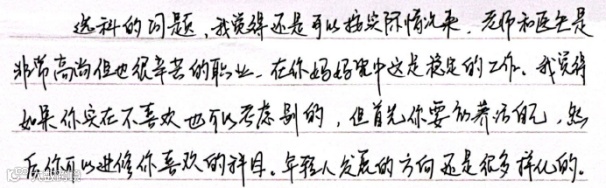 选科的问题，我觉得还是可以按实际情况来，老师和医生是
非常高尚但也很辛苦的职业。在你妈妈眼中这是稳定的工作。我觉得
如果你实在不喜欢也可以考虑别的，但首先你要能养活自己，然
后你可以进修你喜欢的科目。年轻人发展的方向还是很多样化的。